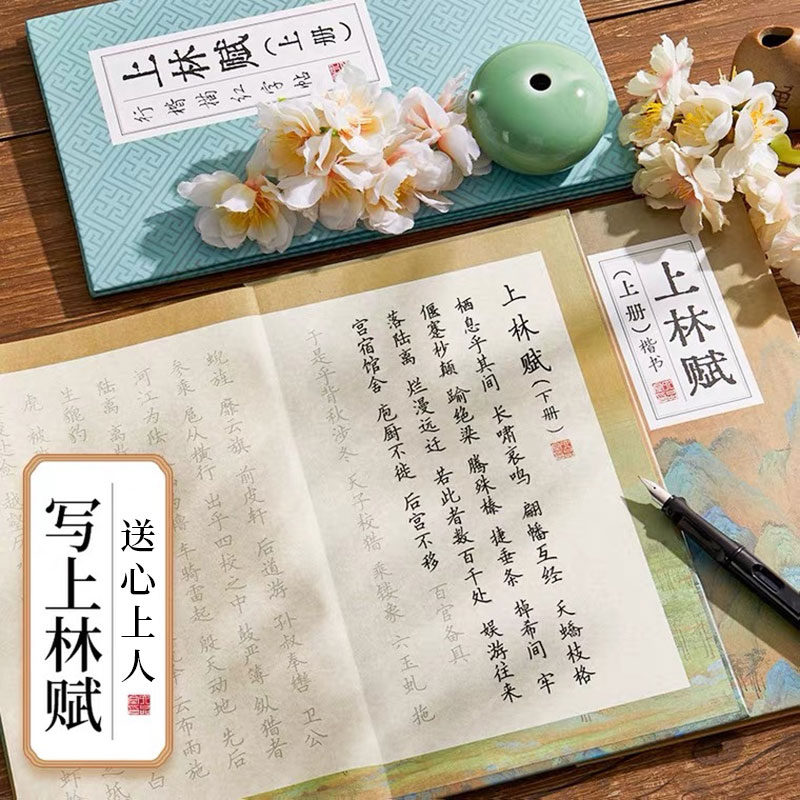 上林赋（上册）
行楷描红字帖
上林赋
（上册）楷书
上林赋（下册）
栖息乎其间 长啸哀鸣 翩幡互经 夭蟜枝格
偃蹇杪颠 踰绝梁 腾殊榛 捷垂条 掉希间 牢
落陆离 烂漫远迁 若此者数百千处 娱游往来
宫宿馆舍 庖厨不徙 后宫不移 百官备具
于是乎背秋涉冬 天子校猎 乘镂象 六玉虬 拖
蜺旌 靡云旗 前皮轩 后道游 孙叔奉辔 卫公
参乘 扈从横行 出乎四校之中 鼓严簿 纵猎者
河江为阹 车骑雷起 殷天动地 先后
陆离 云布雨施
生貔豹
送心上人
写上林赋